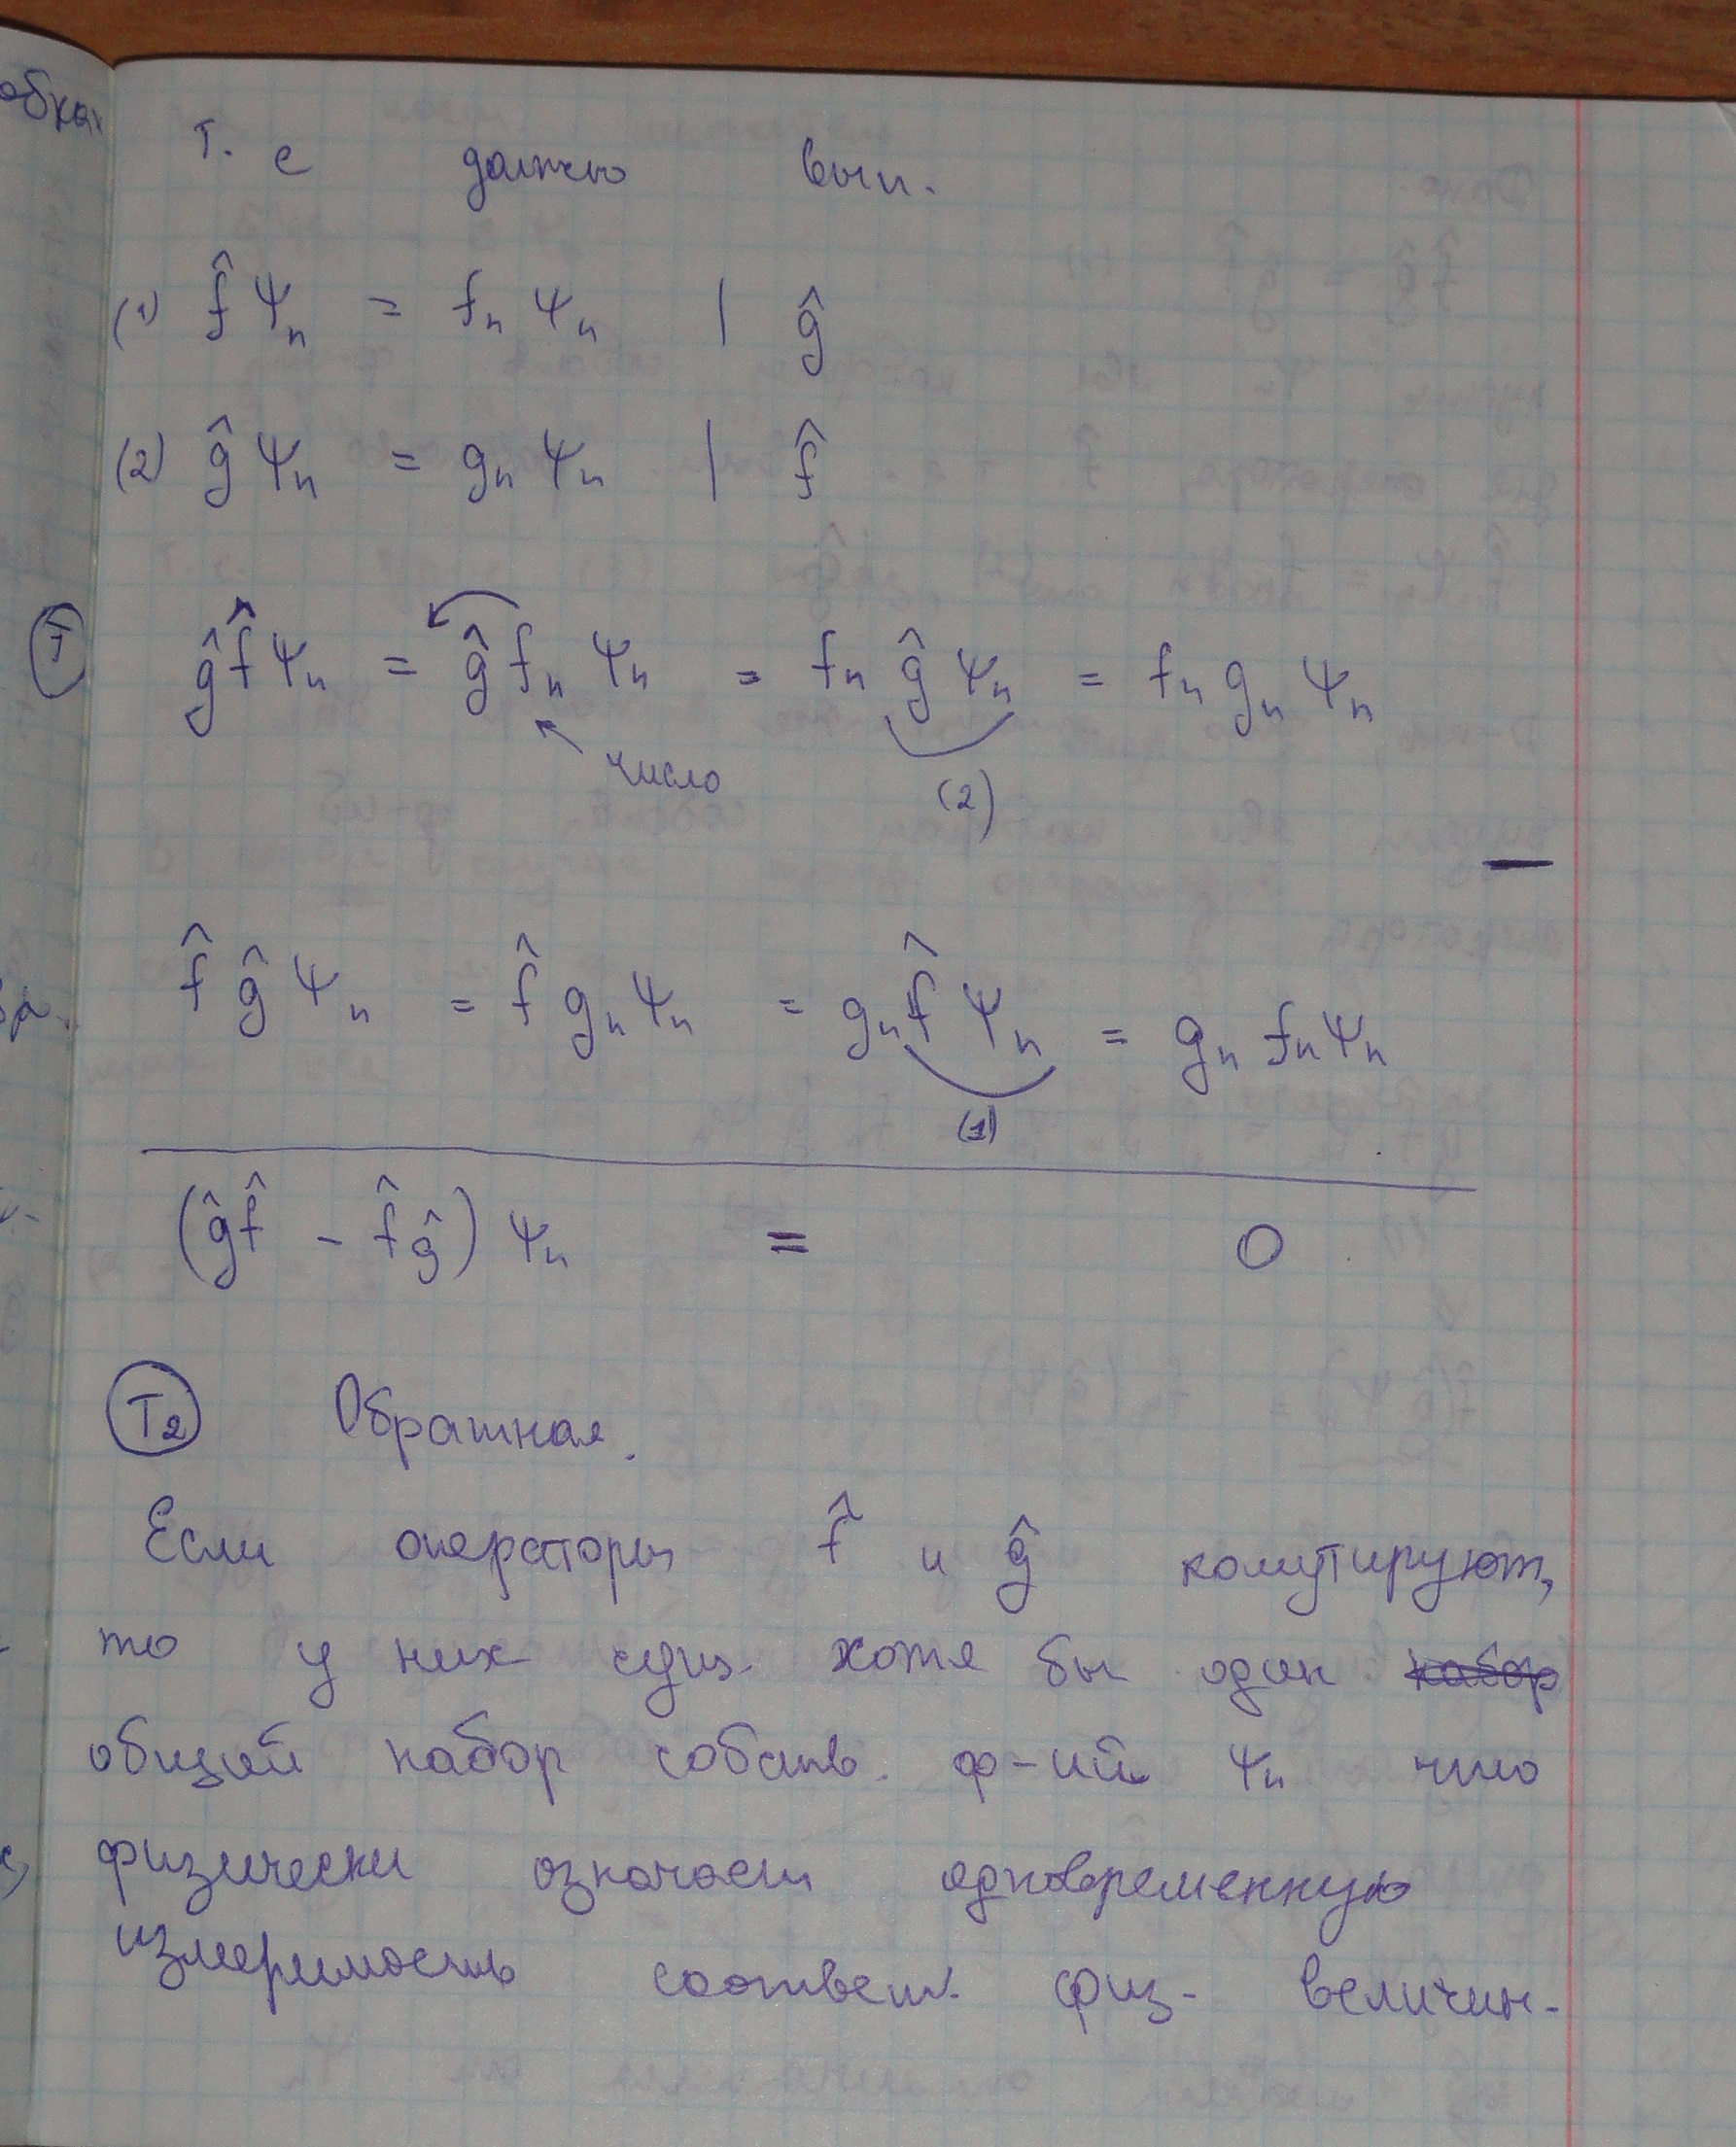 Т. е должно вып.
(1) f̂ Ψₙ = fₙ Ψₙ | ĝ
(2) ĝ Ψₙ = gₙ Ψₙ | f̂
ĝ f̂ Ψₙ = ĝ fₙ Ψₙ = fₙ ĝ Ψₙ = fₙ gₙ Ψₙ
число (2)
—
f̂ ĝ Ψₙ = f̂ gₙ Ψₙ = gₙ f̂ Ψₙ = gₙ fₙ Ψₙ
(1)
(ĝf̂ - f̂ĝ) Ψₙ = 0
T₂ Обратная.
Если операторы f̂ и ĝ комутируют,
то у них сущ. хотя бы один набор
общий набор собств. ф-ий Ψₙ что
физически означает одновременную
измеримость соответ. физ. величин.